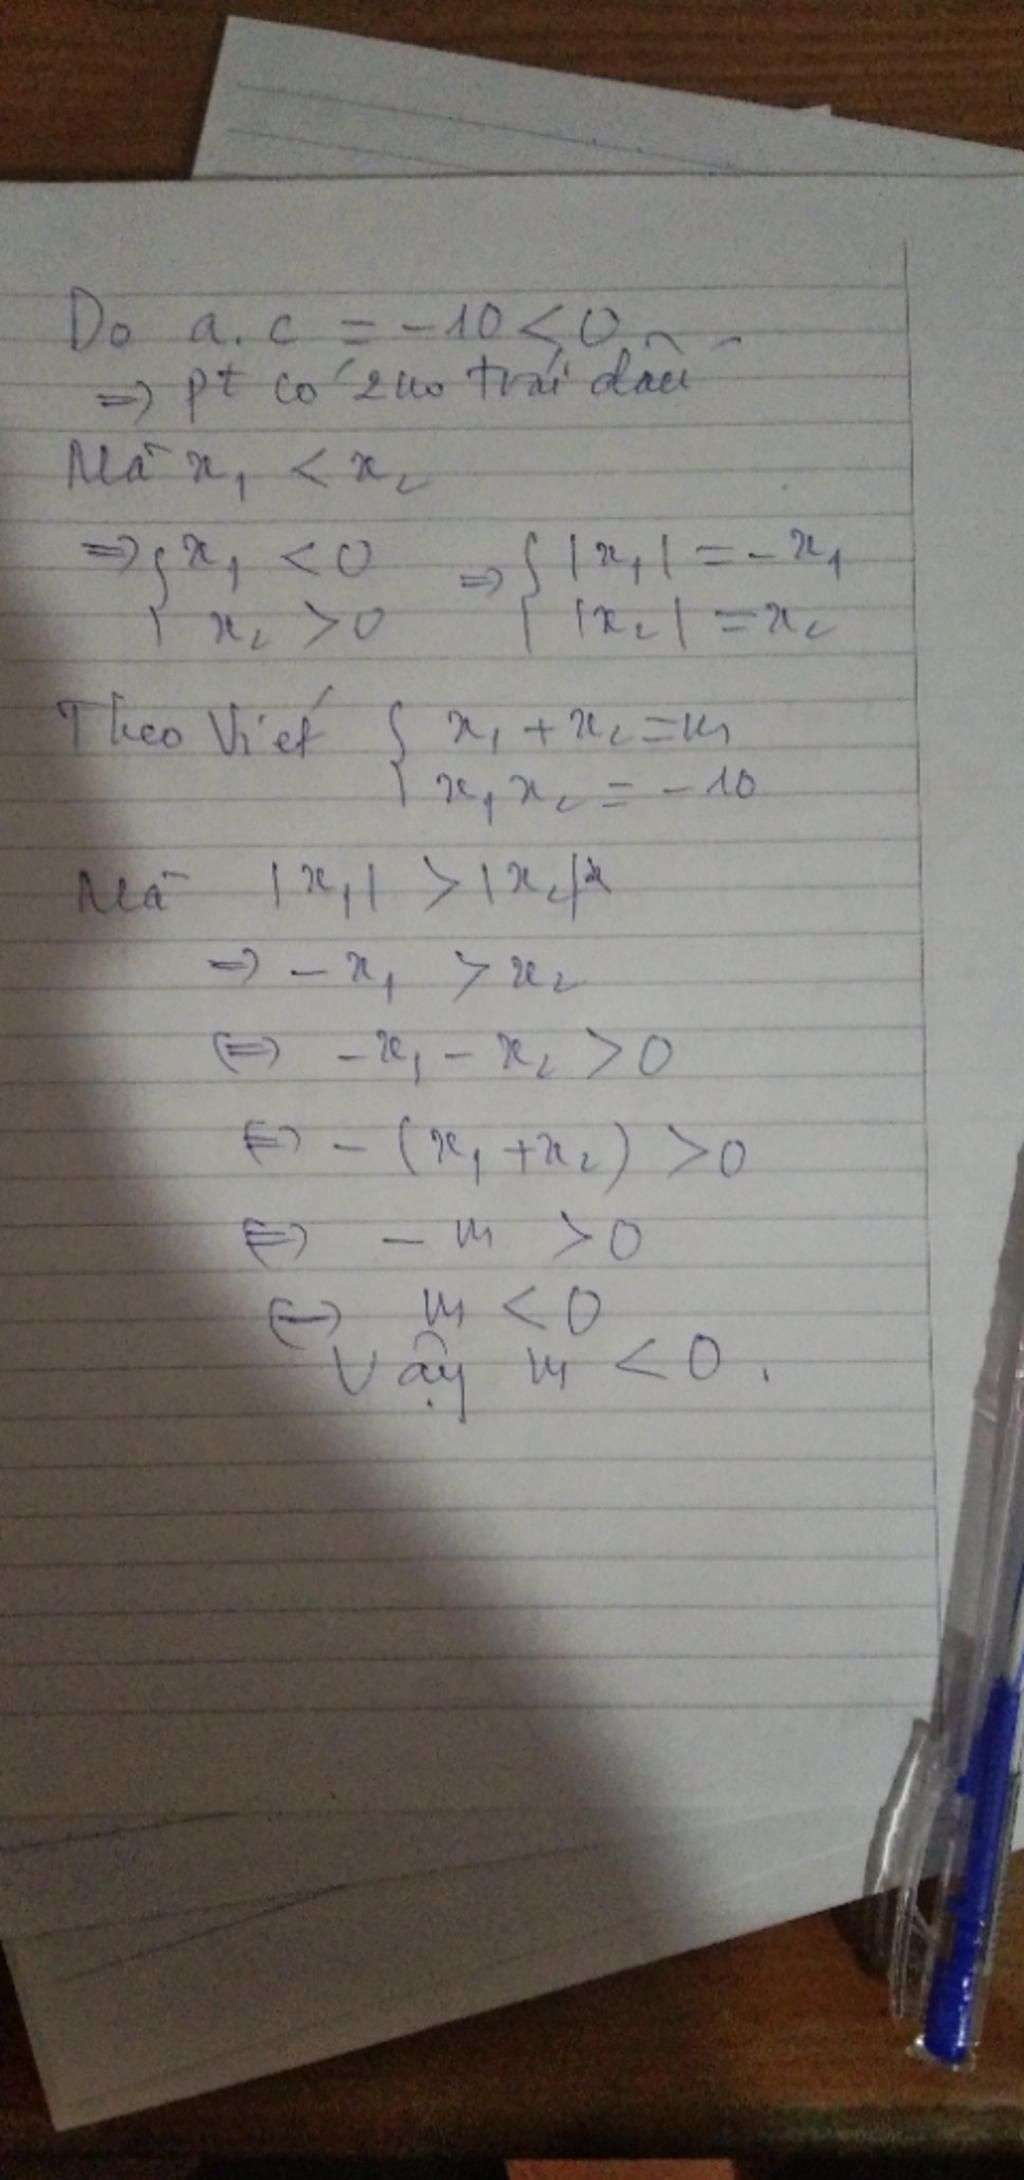 Do a.c = -10 < 0
=> pt có 2 no trái dấu
Mà x₁ < x₂
=> { x₁ < 0 => { |x₁| = -x₁
x₂ > 0 |x₂| = x₂
Theo Viét { x₁ + x₂ = m
x₁x₂ = -10
Mà |x₁| > |x₂|
=> -x₁ > x₂
<=> -x₁ - x₂ > 0
<=> -(x₁ + x₂) > 0
<=> -m > 0
<=> m < 0
Vậy m < 0.